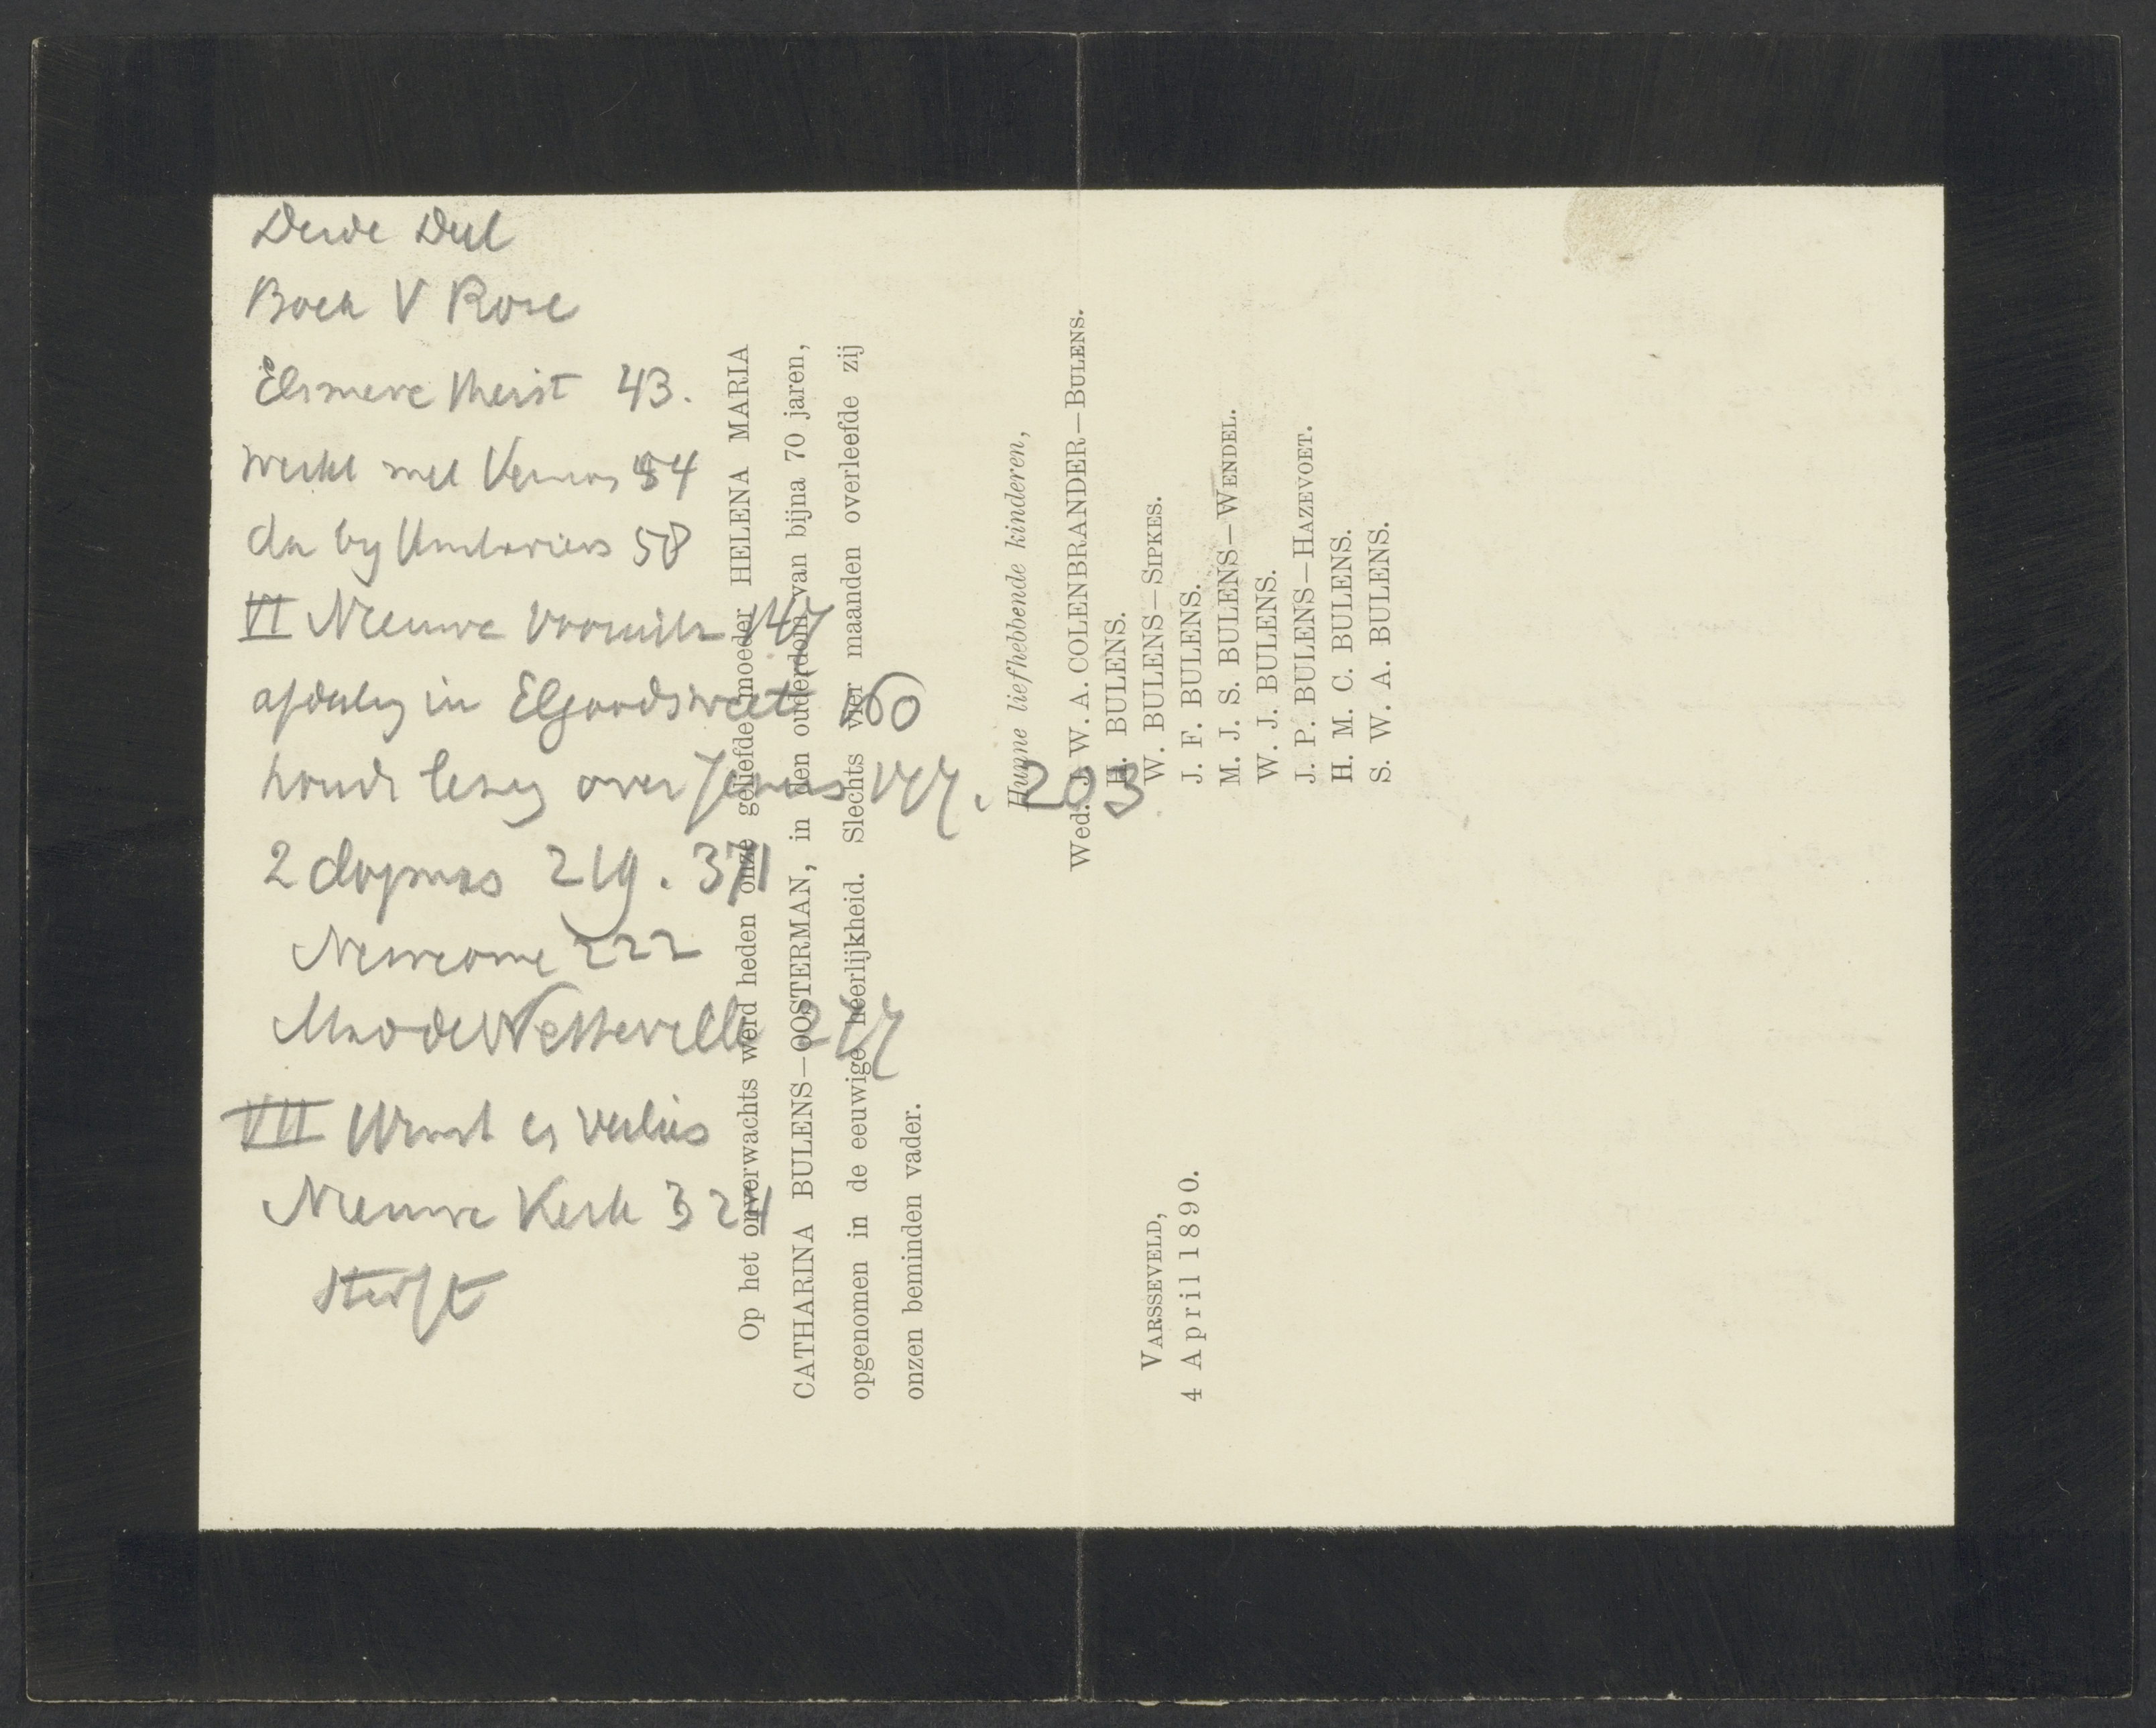 Derde Deel
Boek V Rose
Elsmere 43.
werkt met 54
da by Unitariers 58
VI Nieuwe 147
afdaling in Elgoodstreet 160
houdt lezing over Jezus 177. 203
2 dogmas 219. 371
Newcome 222
Madde Netteville 277
VII Winst en verlies
Nieuwe Kerk 324
sterft
Op het onverwachts werd heden onze geliefde moeder HELENA MARIA
CATHARINA BULENS—OOSTERMAN, in den ouderdom van bijna 70 jaren,
opgenomen in de eeuwige heerlijkheid. Slechts vier maanden overleefde zij
onzen beminden vader.
Hunne liefhebbende kinderen,
Wed. J. W. A. COLENBRANDER—BULENS.
H. BULENS.
W. BULENS—SIPKES.
J. F. BULENS.
M. J. S. BULENS—WENDEL.
W. J. BULENS.
J. P. BULENS—HAZEVOET.
H. M. C. BULENS.
S. W. A. BULENS.
VARSSEVELD,
4 April 1890.